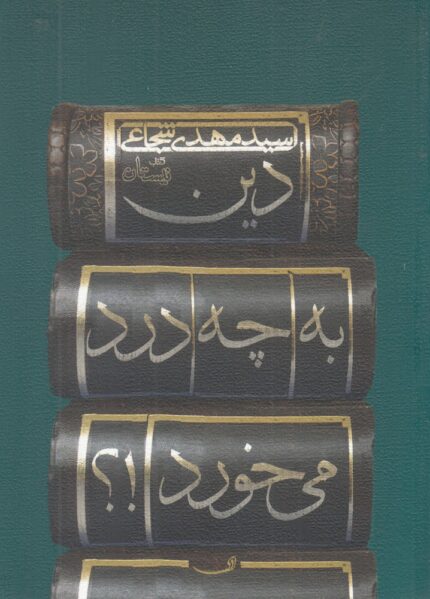 سید مهدی شجاعی
کتاب
نیستان
دین
به چه درد
می خورد !؟